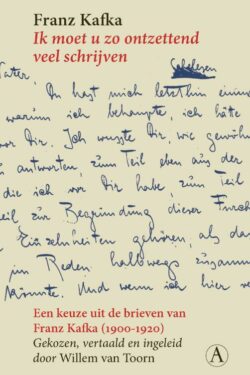 Franz Kafka
Ik moet u zo ontzettend
veel schrijven
Schelesen
Vater,
Du hast mich letzthin einmal
warum ich behaupte, ich hätte
vor Dir. Ich wusste Dir, wie gewöh
zu antworten, zum Teil eben aus der
die ich vor Dir habe, zum Teil
eil zur Begründung dieser Furch
Einzelnheiten gehören, als da
im Reden halbwegs zusamm
könnte. Und wenn ich hier ve
Een keuze uit de brieven van
Franz Kafka (1900-1920)
Gekozen, vertaald en ingeleid
door Willem van Toorn
A